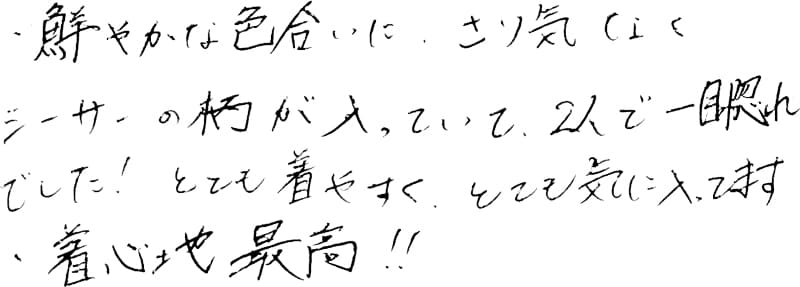 ・鮮やかな色合いに、さり気なく
シーサーの柄が入っていて、2人で一目惚れ
でした！とても着やすく、とても気に入ってます
・着心地最高!!